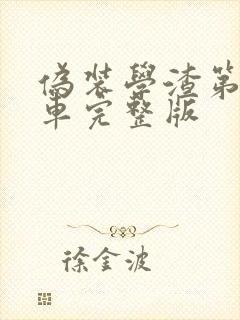 偽裝學渣第
車完整版
徐金波